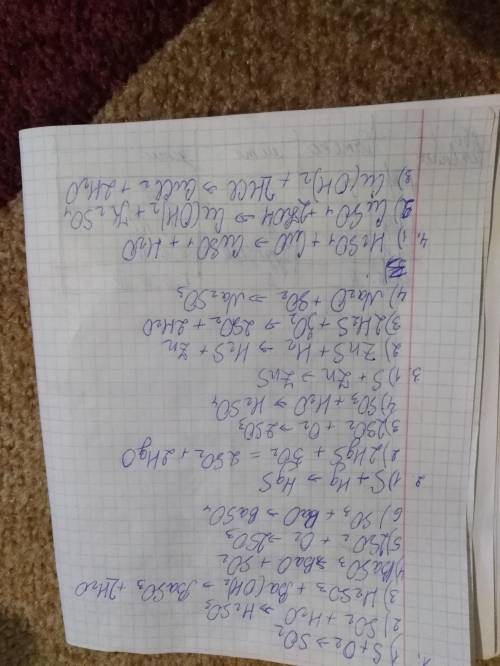 1. 1) S + O₂ ⇒ SO₂
2) SO₂ + H₂O ⇒ H₂SO₃
3) H₂SO₃ + Ba(OH)₂ ⇒ BaSO₃ + 2H₂O
4) BaSO₃ ⇒ BaO + SO₂
5) 2SO₂ + O₂ ⇒ 2SO₃
6) SO₃ + BaO ⇒ BaSO₄
2. 1) S + Hg ⇒ HgS
2) 2HgS + 3O₂ = 2SO₂ + 2HgO
3) 2SO₂ + O₂ ⇒ 2SO₃
4) SO₃ + H₂O ⇒ H₂SO₄
3. 1) S + Zn ⇒ ZnS
2) ZnS + H₂ ⇒ H₂S + Zn
3) 2H₂S + 3O₂ ⇒ 2SO₂ + 2H₂O
4) Na₂O + SO₂ ⇒ Na₂SO₃
4. 1) H₂SO₄ + CuO ⇒ CuSO₄ + H₂O
2) CuSO₄ + 2KOH ⇒ Cu(OH)₂ + K₂SO₄
3) Cu(OH)₂ + 2HCl ⇒ CuCl₂ + 2H₂O